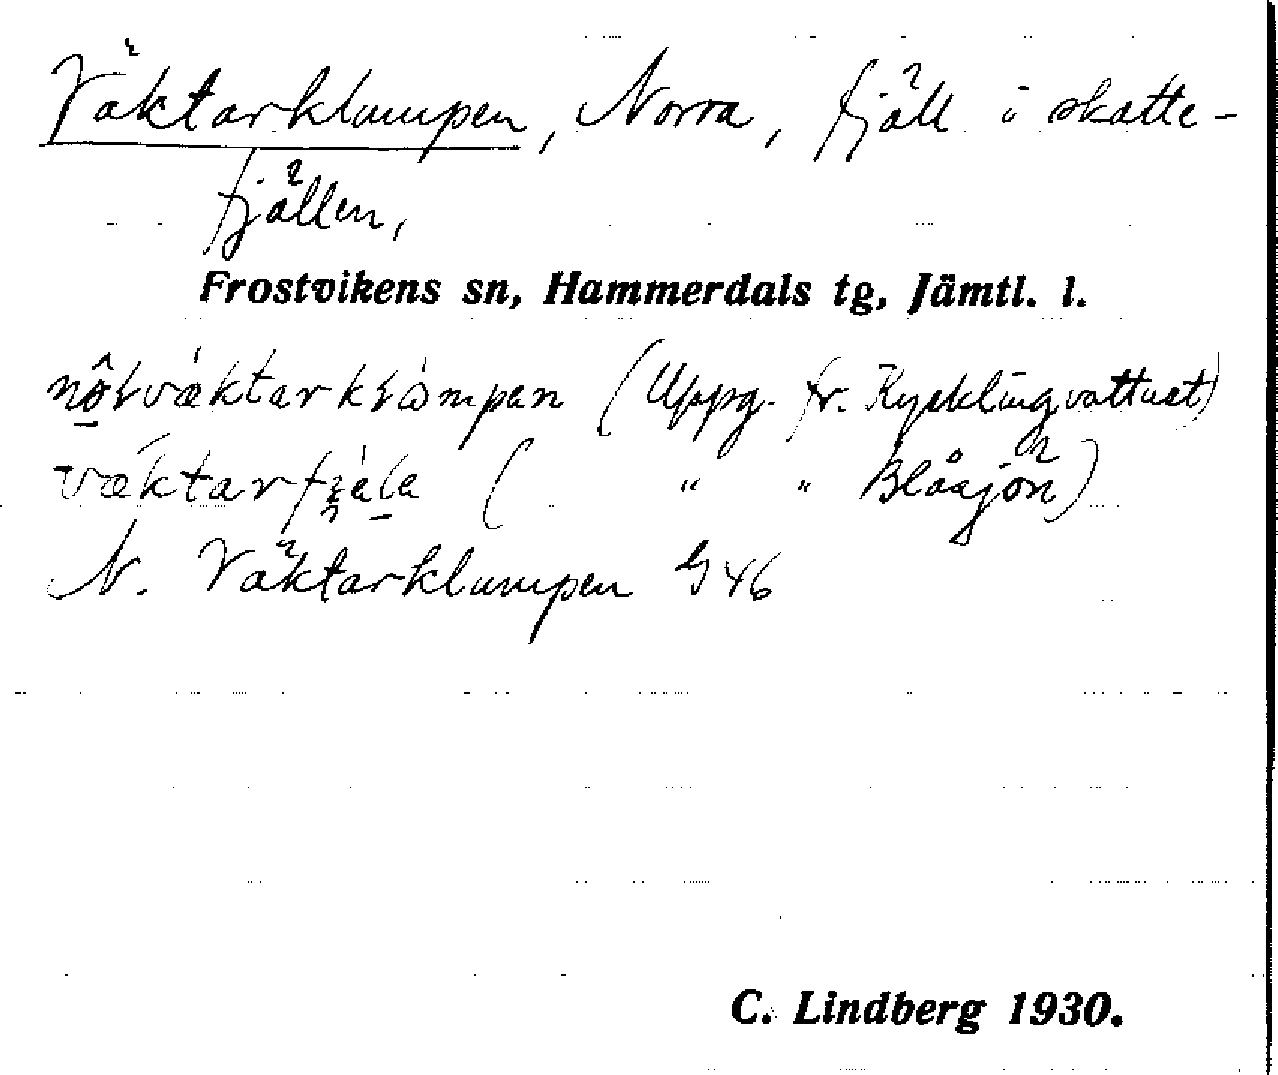 Väktarklumpen, Norra, fjäll i skatte-
fjällen,
Frostvikens sn, Hammerdals tg, Jämtl. l.
(Uppg. fr. Kycklingvattnet)
( " " Blåsjön)
N. Väktarklumpen G46
C. Lindberg 1930.